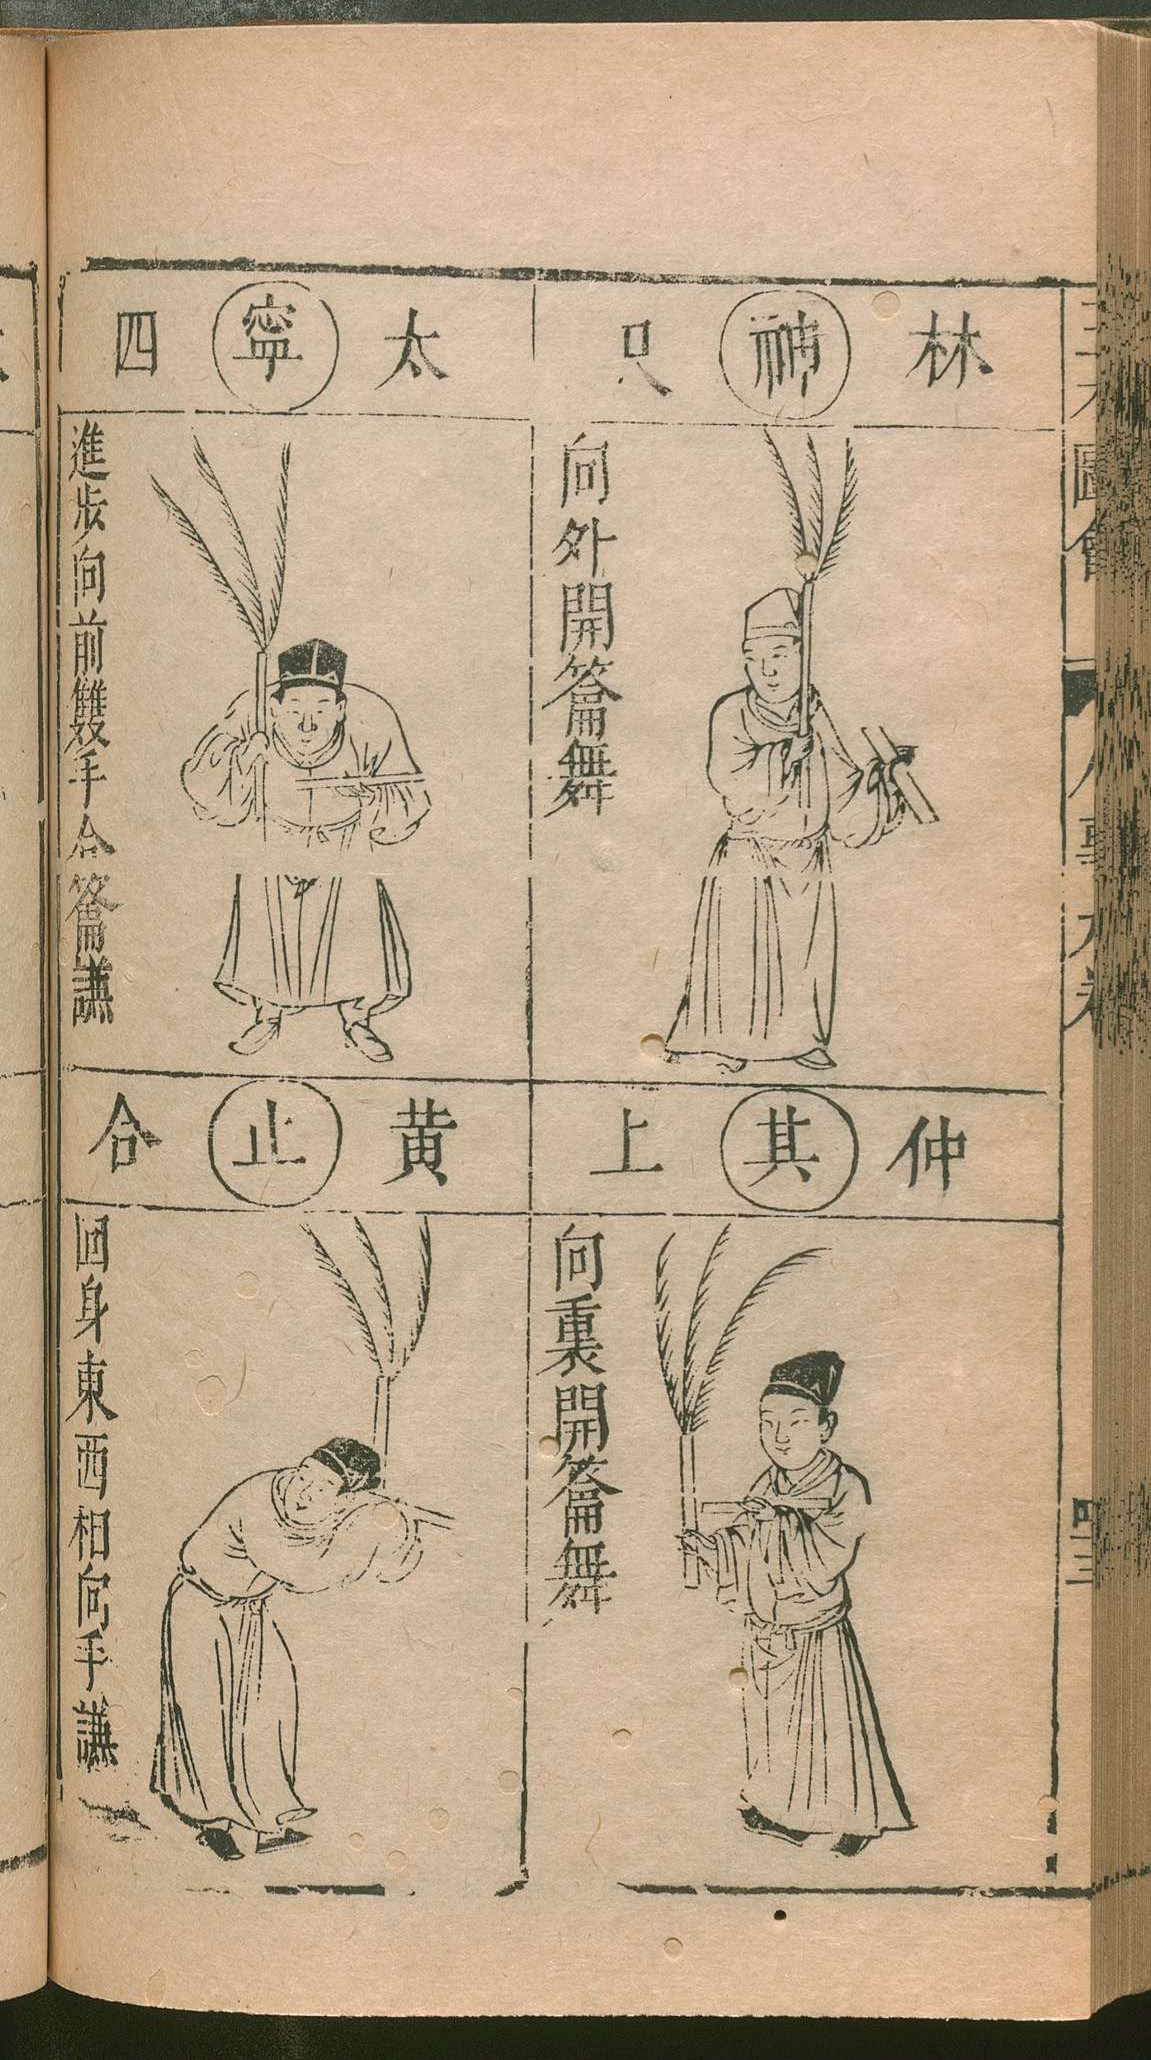 三才圖會
人事九卷
四三
林 神 尺
向外開籥舞
仲 其 上
向裏開籥舞
太 寧 四
進步向前雙手合籥謙
黃 止 合
回身東西相向手謙